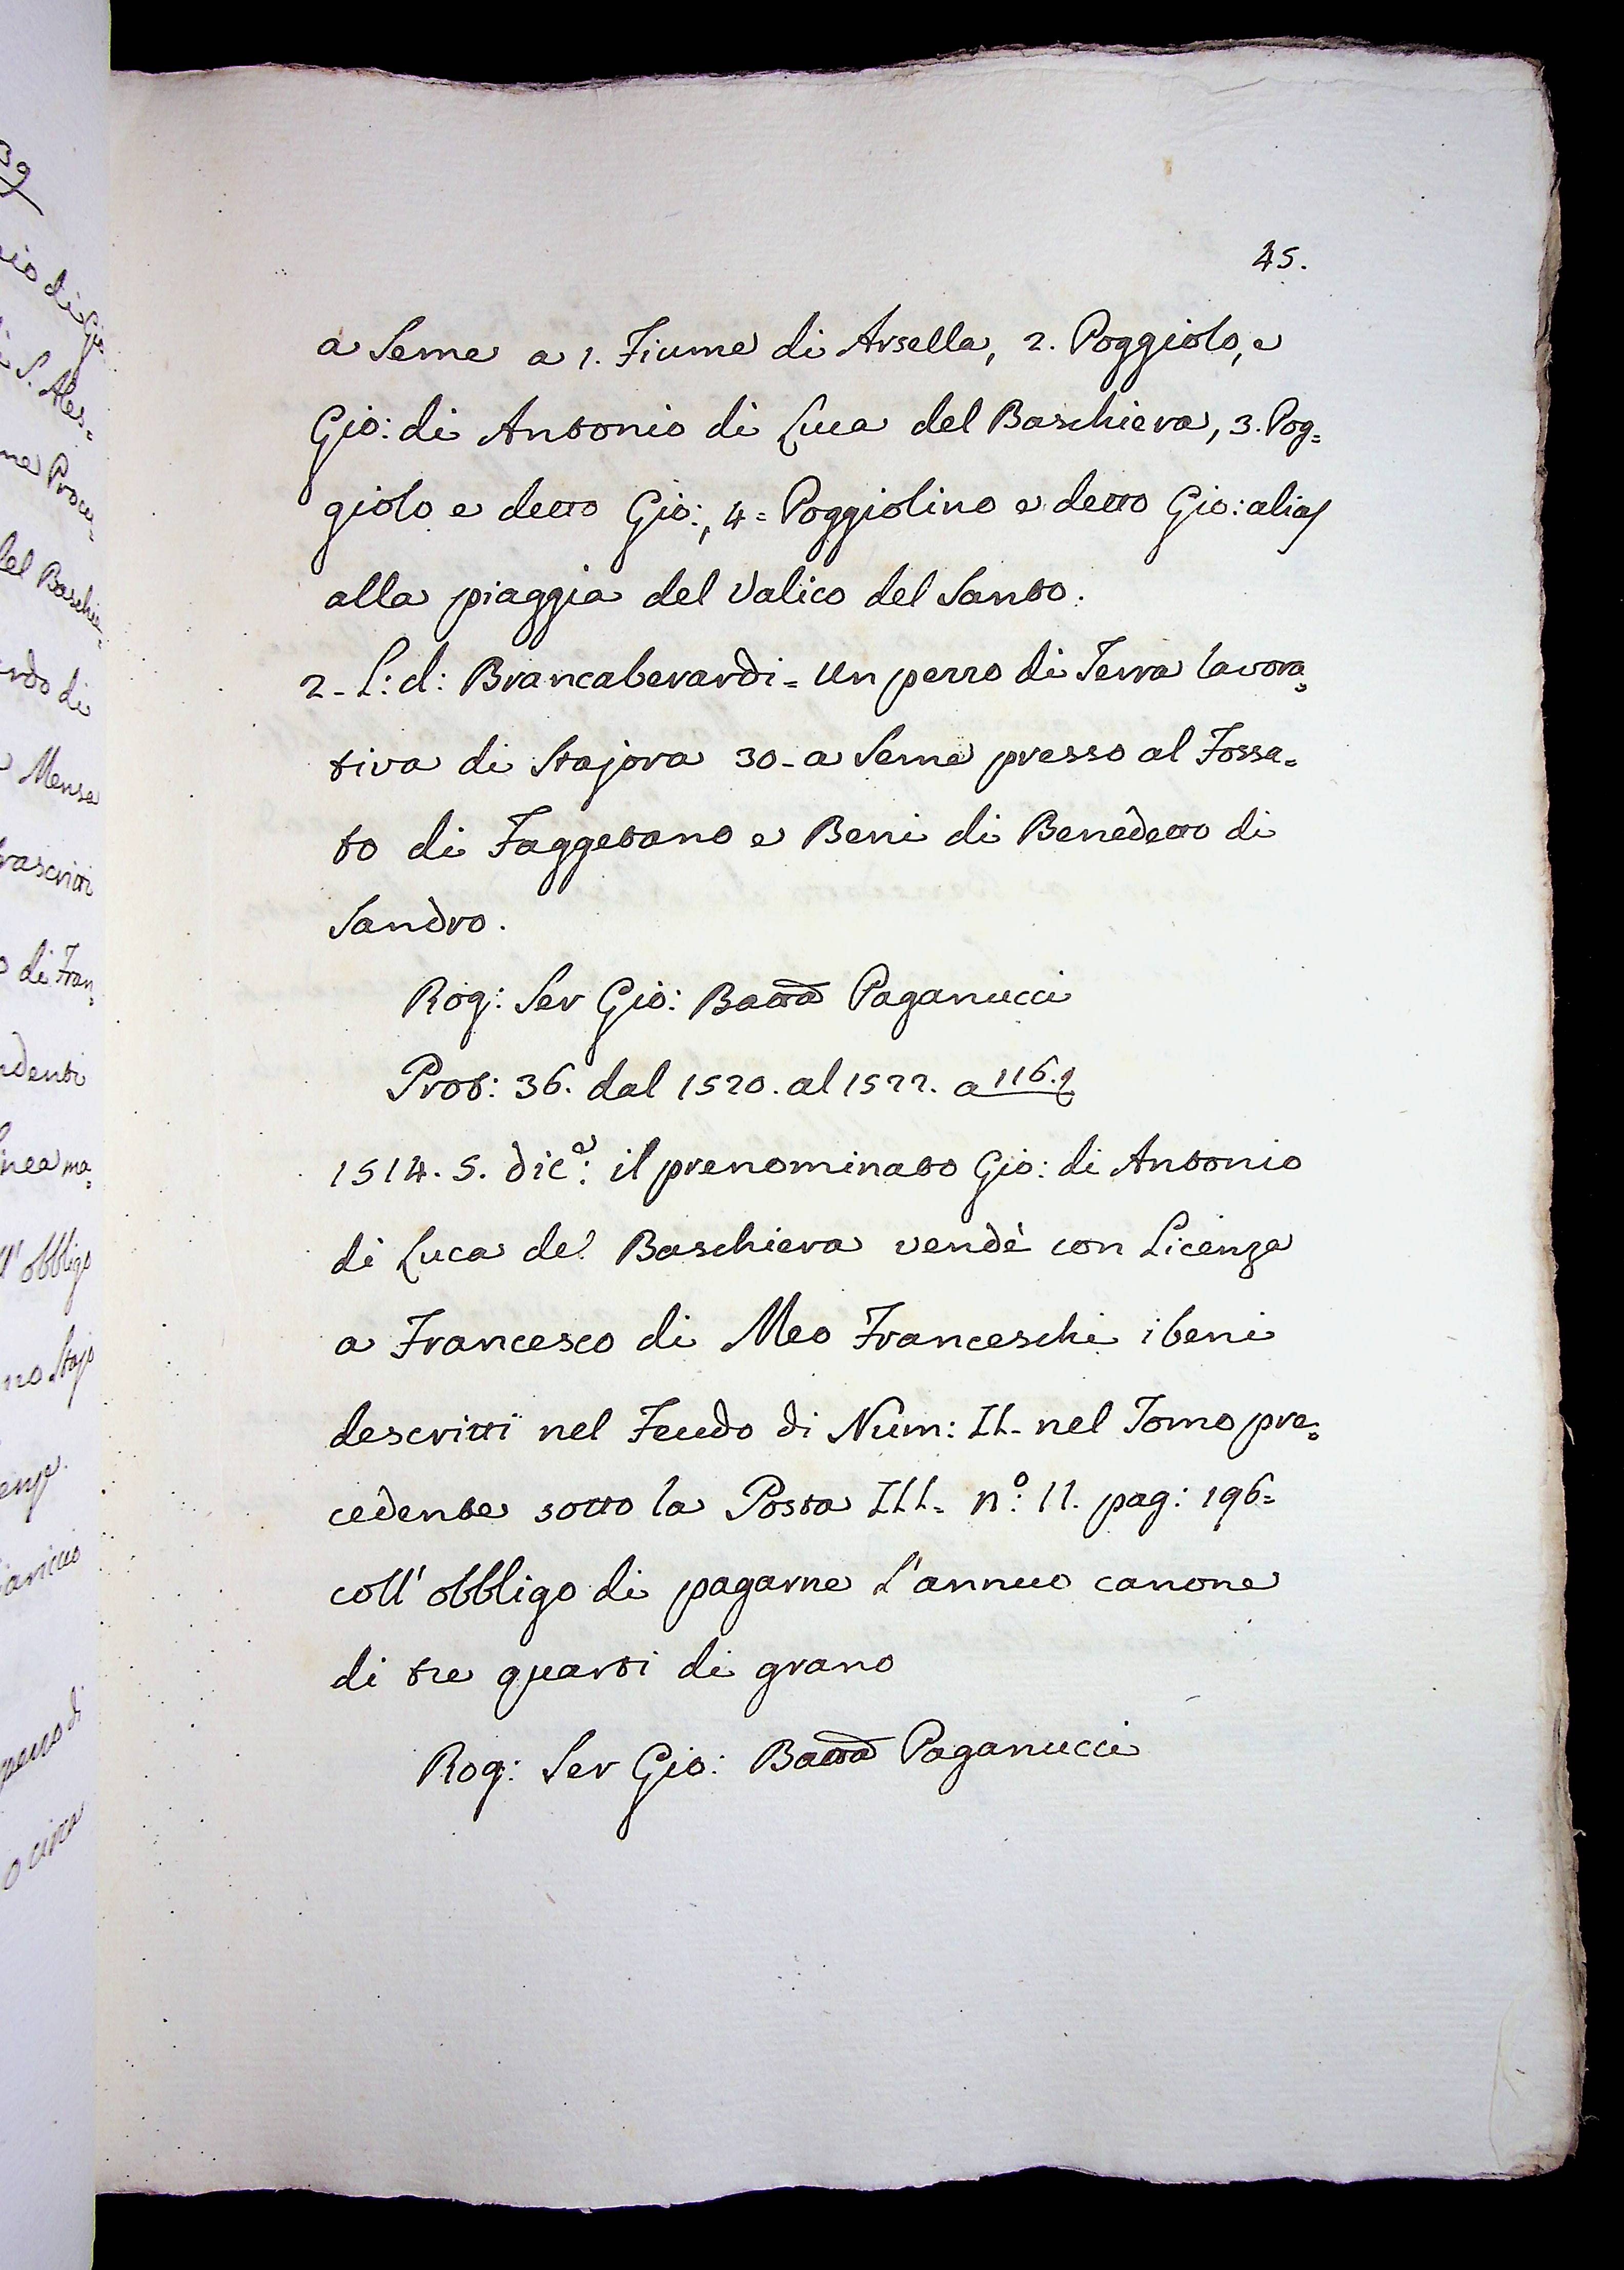 45.
a Seme a 1. Fiume di Arsella, 2. Poggiolo, e
Gio: di Antonio di Luca del Baschiera, 3. Pog=
giolo e detto Gio:, 4= Poggiolino e detto Gio: alias
alla piaggia del Valico del Santo.
2- L: d: Brancaberardi= Un pezzo di Terra lavora=
tiva di Stajora 30- a Seme presso al Fossa=
to di Faggetano e Beni di Benedetto di
Sandro.
Rog: Ser Gio: Batta Paganucci
Prot: 36. dal 1520. al 1522. a 116.
1514. 5. dice: il prenominato Gio: di Antonio
di Luca del Baschiera vendè con Licenza
a Francesco di Meo Franceschi i beni
descritti nel Feudo di Num: II- nel Tomo pre=
cedente sotto la Posta III- no: 11. pag: 196=
coll' obbligo di pagarne l'annuo canone
di tre quarti di grano
Rog: Ser Gio: Batta Paganucci